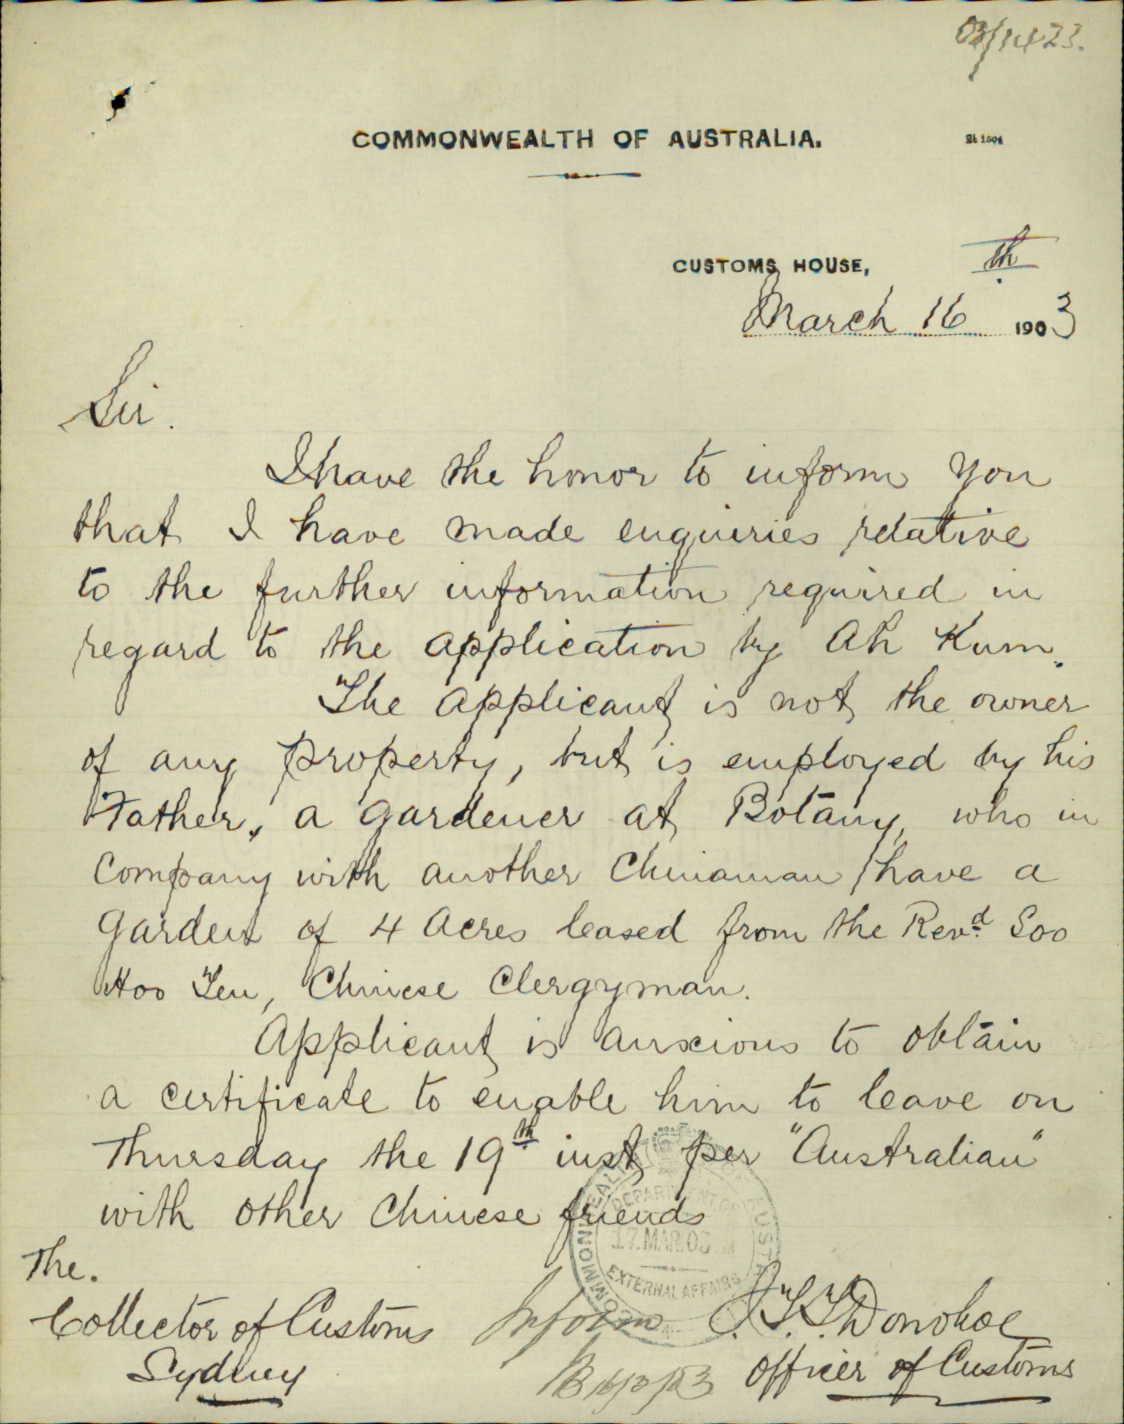 03/1423.
COMMONWEALTH OF AUSTRALIA.
CUSTOMS HOUSE,
March 16th 1903
Sir.
I have the honor to inform you
that I have made enquiries relative
to the further information required in
regard to the application by Ah Kum.
The applicant is not the owner
of any property, but is employed by his
Father, a gardener at Botany, who in
Company with another Chinaman have a
Garden of 4 Acres leased from the Revd. Soo
Hoo Ten, Chinese Clergyman.
Applicant is anxious to obtain
a certificate to enable him to leave on
Thursday the 19th inst per "Australian"
with other Chinese friends
COMMONWEALTH
DEPARTMENT OF
17.MAR.03
EXTERNAL AFFAIRS
The.
Collector of Customs
Sydney
Inform
J. T. T. Donohoe
Officer of Customs